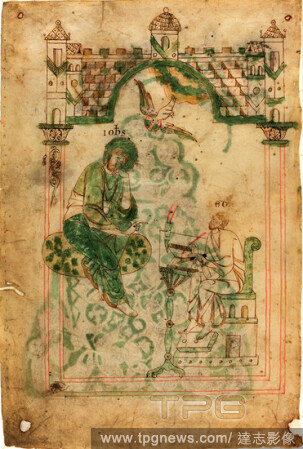 IOhS
TPG
www.tpgnews.com/ 達志影像